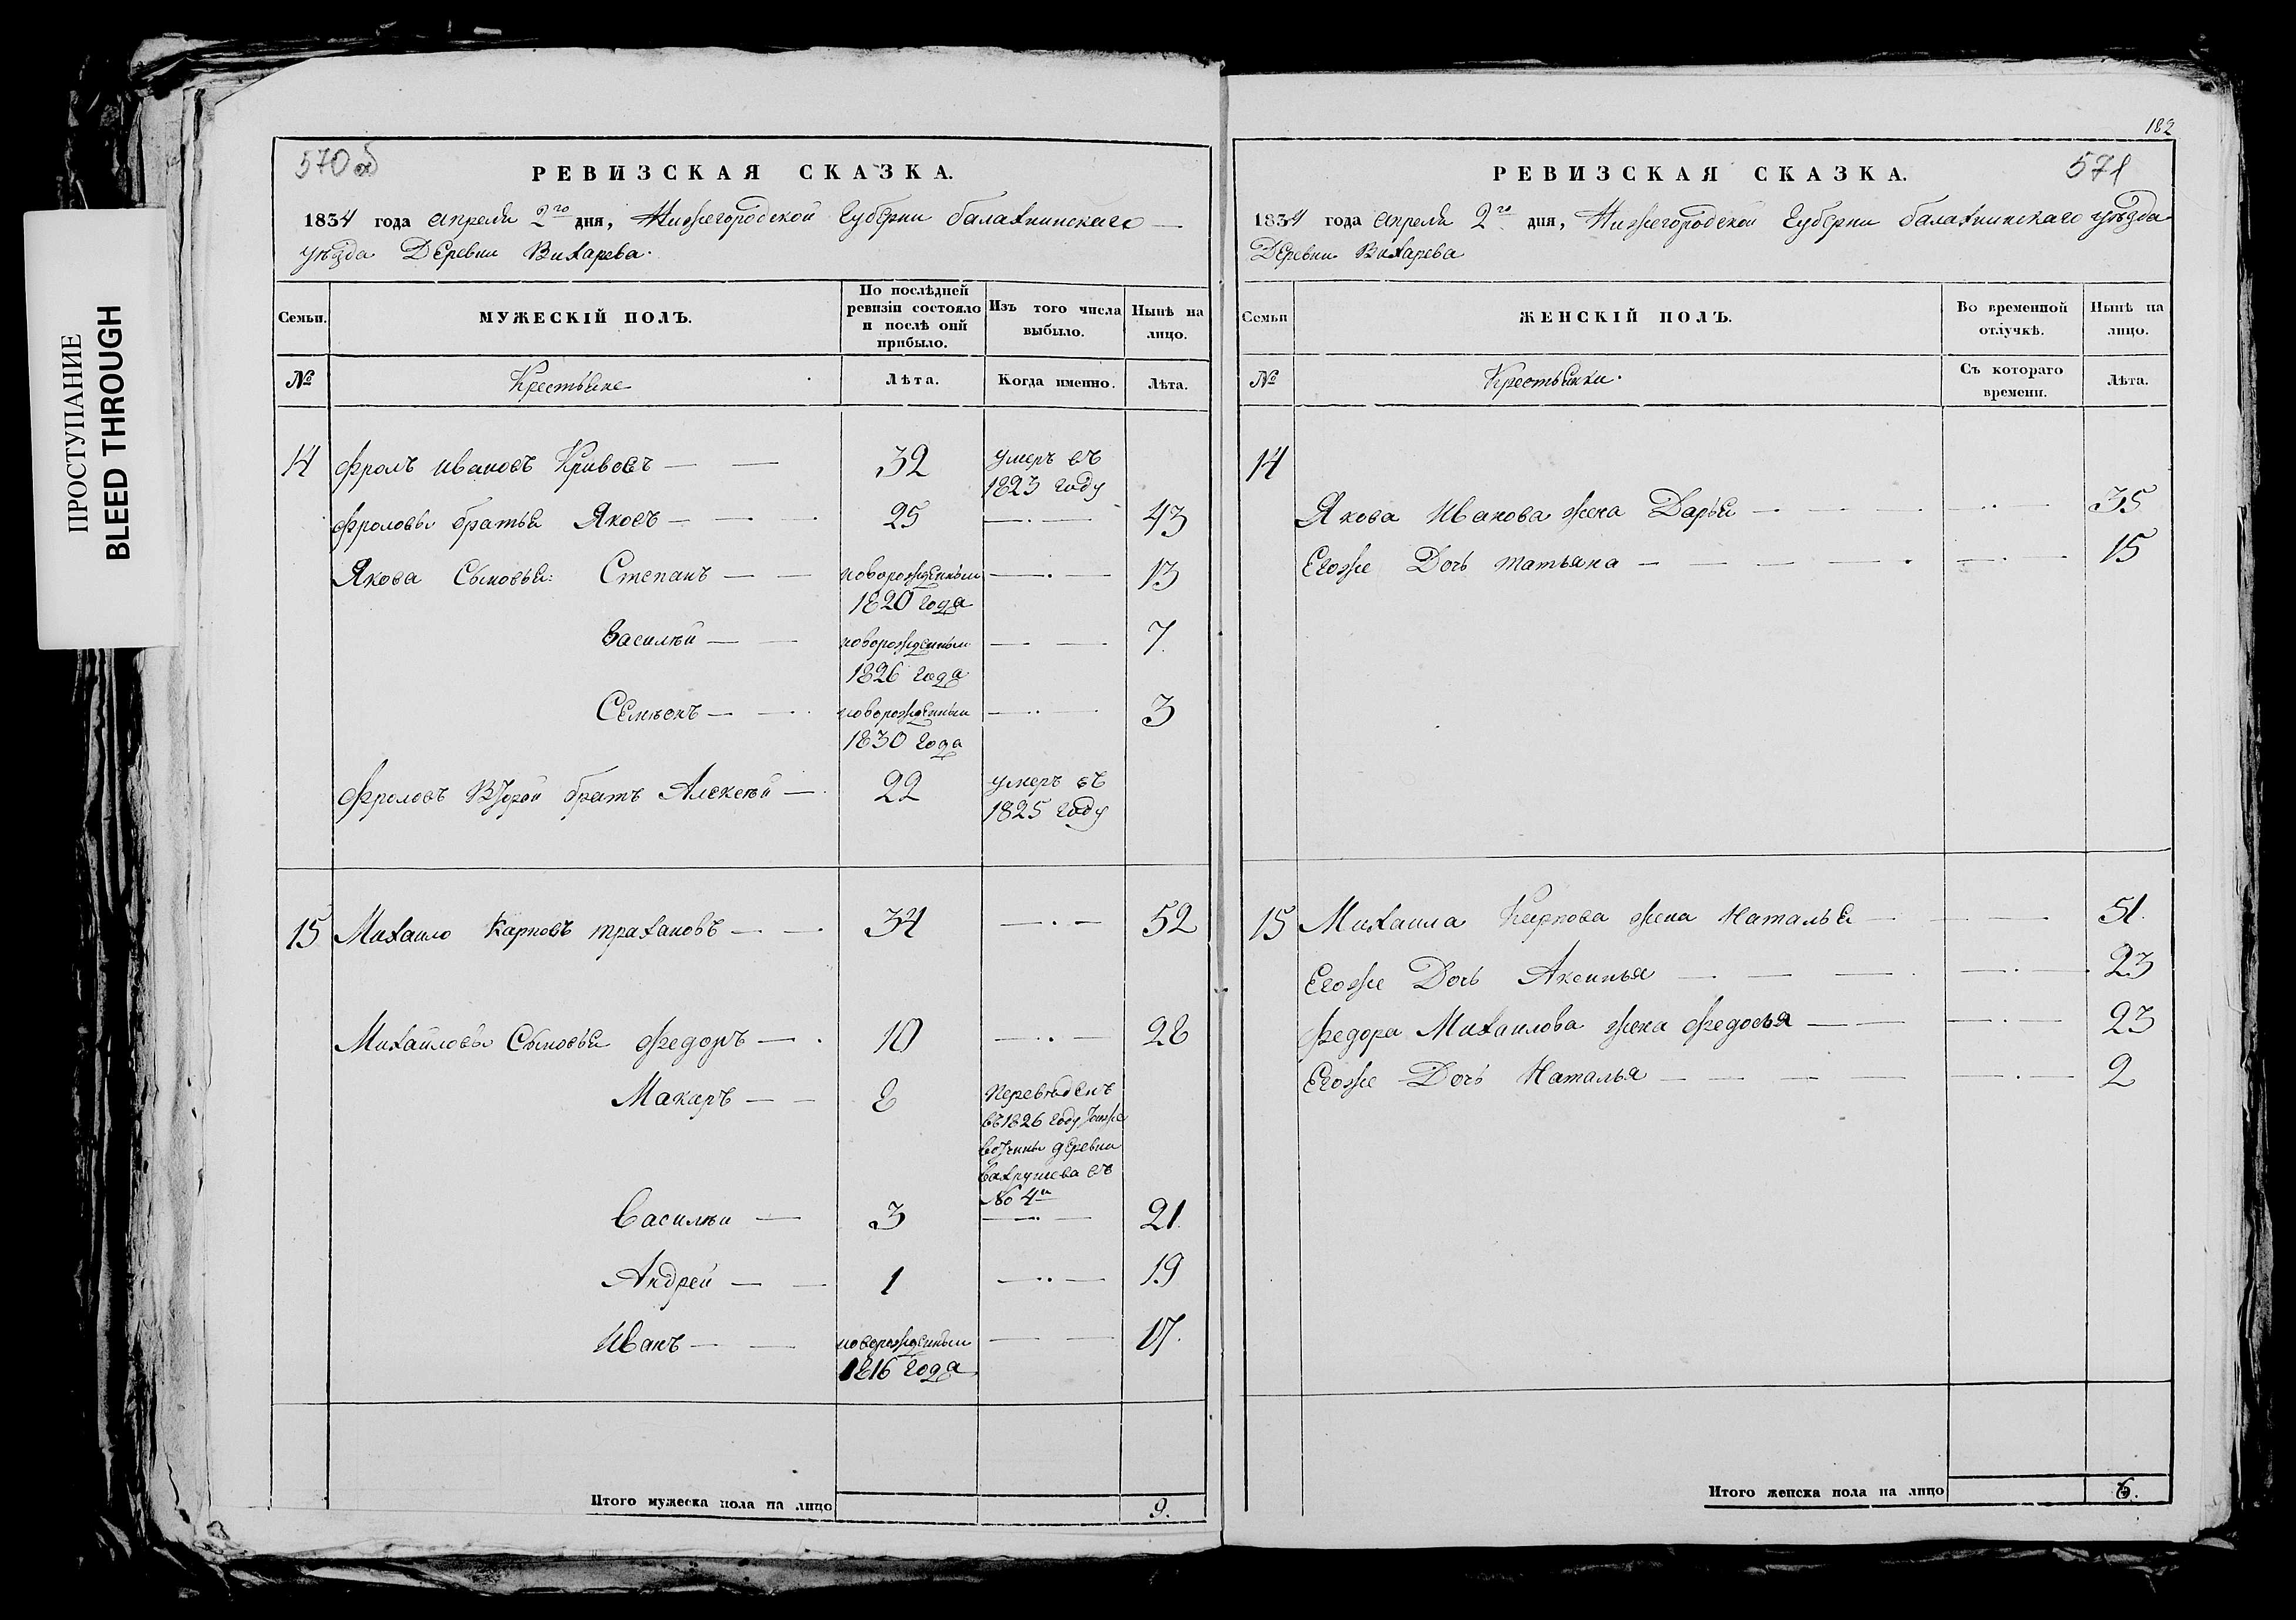 ПРОСТУПАНИЕ
BLEED THROUGH
570об
РЕВИЗСКАЯ СКАЗКА.
1834 года апреля 2го дня, Нижегородской Губерни балахнинскаго
уѣзда Деревни Вихарева.
Семьи.
МУЖЕСКІЙ ПОЛЪ.
По послѣдней
ревизіи состояло
и послѣ оной
прибыло.
Изъ того числа
выбыло.
Нынѣ на
лицо.
№
Крестьяне
Лѣта.
Когда именно.
Лѣта.
14 Фролъ ивановъ Кривовъ — — 32 умеръ въ
1823 году
Фроловы братья Яковъ — — 25 — . — 43
Якова Сыновья: Степанъ — — новорожденный — . — 13
1820 года
Василѣй — — новорожденный — — 7.
1826 года
Семѣонъ — — новорожденный — . . — 3
1830 года
Фроловъ второй братъ Алексѣй — 22 умеръ въ
1825 году
15 Михаило Карповъ трахановъ — — 34 — . — 52
Михайловы Сыновья Федоръ — 10 — . — 28
Макаръ — — 8 переведенъ
въ 1826 году тойже
вотчины деревни
вахрушева въ
№ 4й
Василѣи — 3 — . — 21.
Андрей — — 1 — . . — 19
Иванъ — — новорожденный — — 17.
1816 года
Итого мужеска пола на лицо 9.
182
571
РЕВИЗСКАЯ СКАЗКА.
1834 года апреля 2го дня, Нижегородской Губерни балахнинскаго уѣзда
Деревни Вихарева
Семьи
ЖЕНСКІЙ ПОЛЪ.
Во временной
отлучкѣ.
Нынѣ на
лицо.
№
Крестьянки.
Съ котораго
времени.
Лѣта.
14
Якова Иванова жена Дарья — — — 35
Егоже Дочь татьяна — — — 15
15 Михаила Карпова жена Наталья — — — 51.
Егоже Дочь Аксинья — — — 23
Федора Михаилова жена Федосья — — — 23
Егоже Дочь Наталья — — — 2
Итого женска пола на лицо 6.